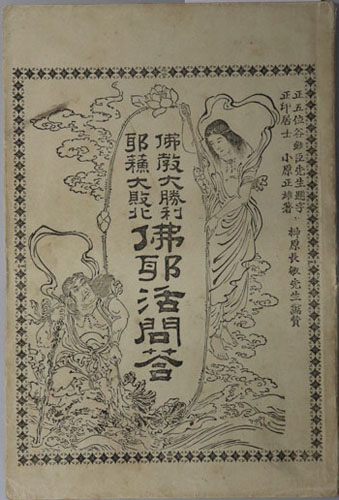 正五位谷鉄臣先生題字、柿原長敏先生画賛
正印居士 小原正雄著
佛教大勝利
耶蘇大敗北
佛耶活問答